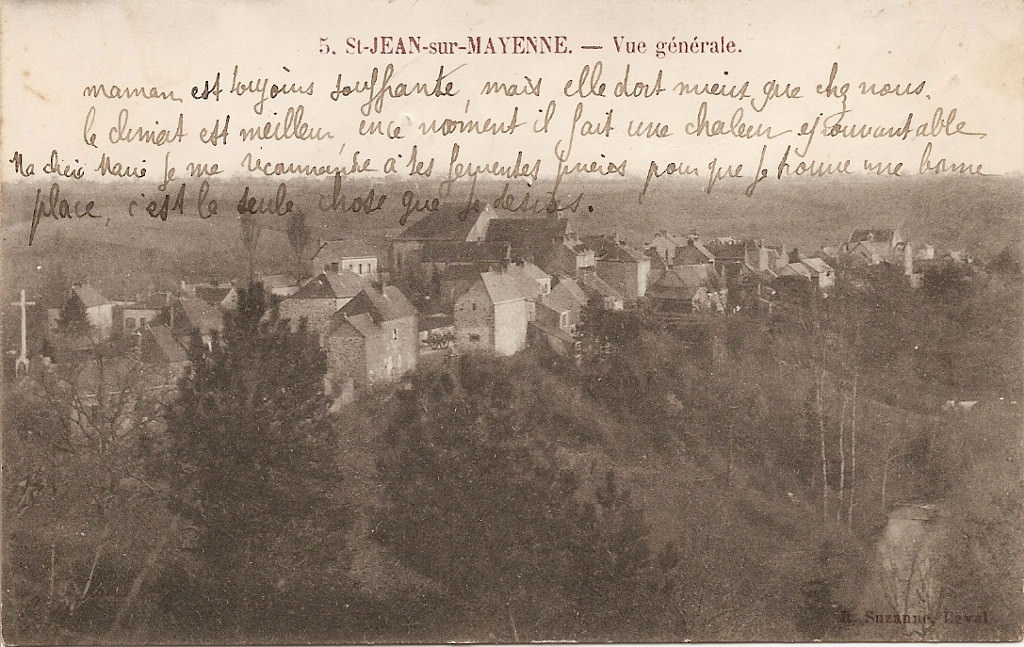 5. St-JEAN-sur-MAYENNE. — Vue générale.
maman est toujoins souffrante, mais elle doit mieux que chez nous.
le climat est meilleur en ce moment il fait une chaleur épouvantable
Ma chère Marie je me recommande à tes ferventes prières pour que je trouve une bonne
place, c'est la seule chose que je désires.
R. Suzanne, Laval